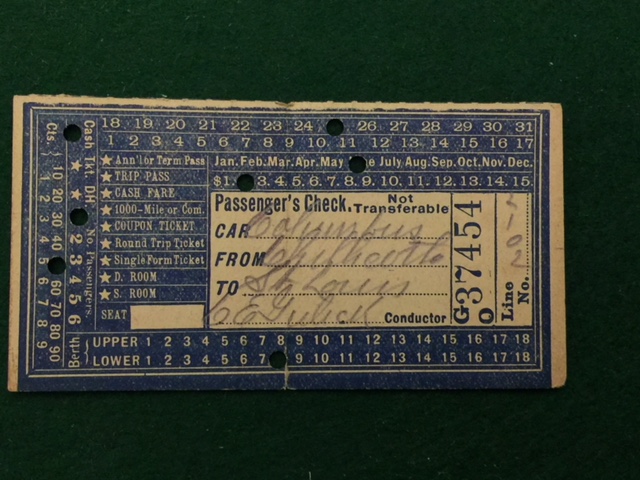 18 19 20 21 22 23 24 26 27 28 29 30 31
1 2 3 4 5 6 7 8 9 10 11 12 13 14 15 16 17
★ Ann'l or Term Pass
★ TRIP PASS
★ CASH FARE
★ 1000-Mile or Com.
★ COUPON TICKET
★ Round Trip Ticket
★ Single Form Ticket
★ D. ROOM
★ S. ROOM
SEAT
Jan. Feb. Mar. Apr. May e July Aug. Sep. Oct. Nov. Dec.
$1. 3. 4. 5. 6. 7. 8. 9. 10. 11. 12. 13. 14. 15.
Passenger's Check. Not Transferable
CAR Columbus
FROM Chillicothe
TO St Louis
Conductor
G 37454
O
Line No. 102
Berth UPPER 1 2 3 4 5 6 7 8 9 10 11 12 13 14 15 16 17 18
LOWER 1 2 3 4 5 6 7 9 10 11 12 13 14 15 16 17 18
Cts. 10 20 30 40 60 70 80 90
1 2 3 4 5 6 7 8 9
Cash Tkt. DH
No. Passengers.
2 3 4 5 6